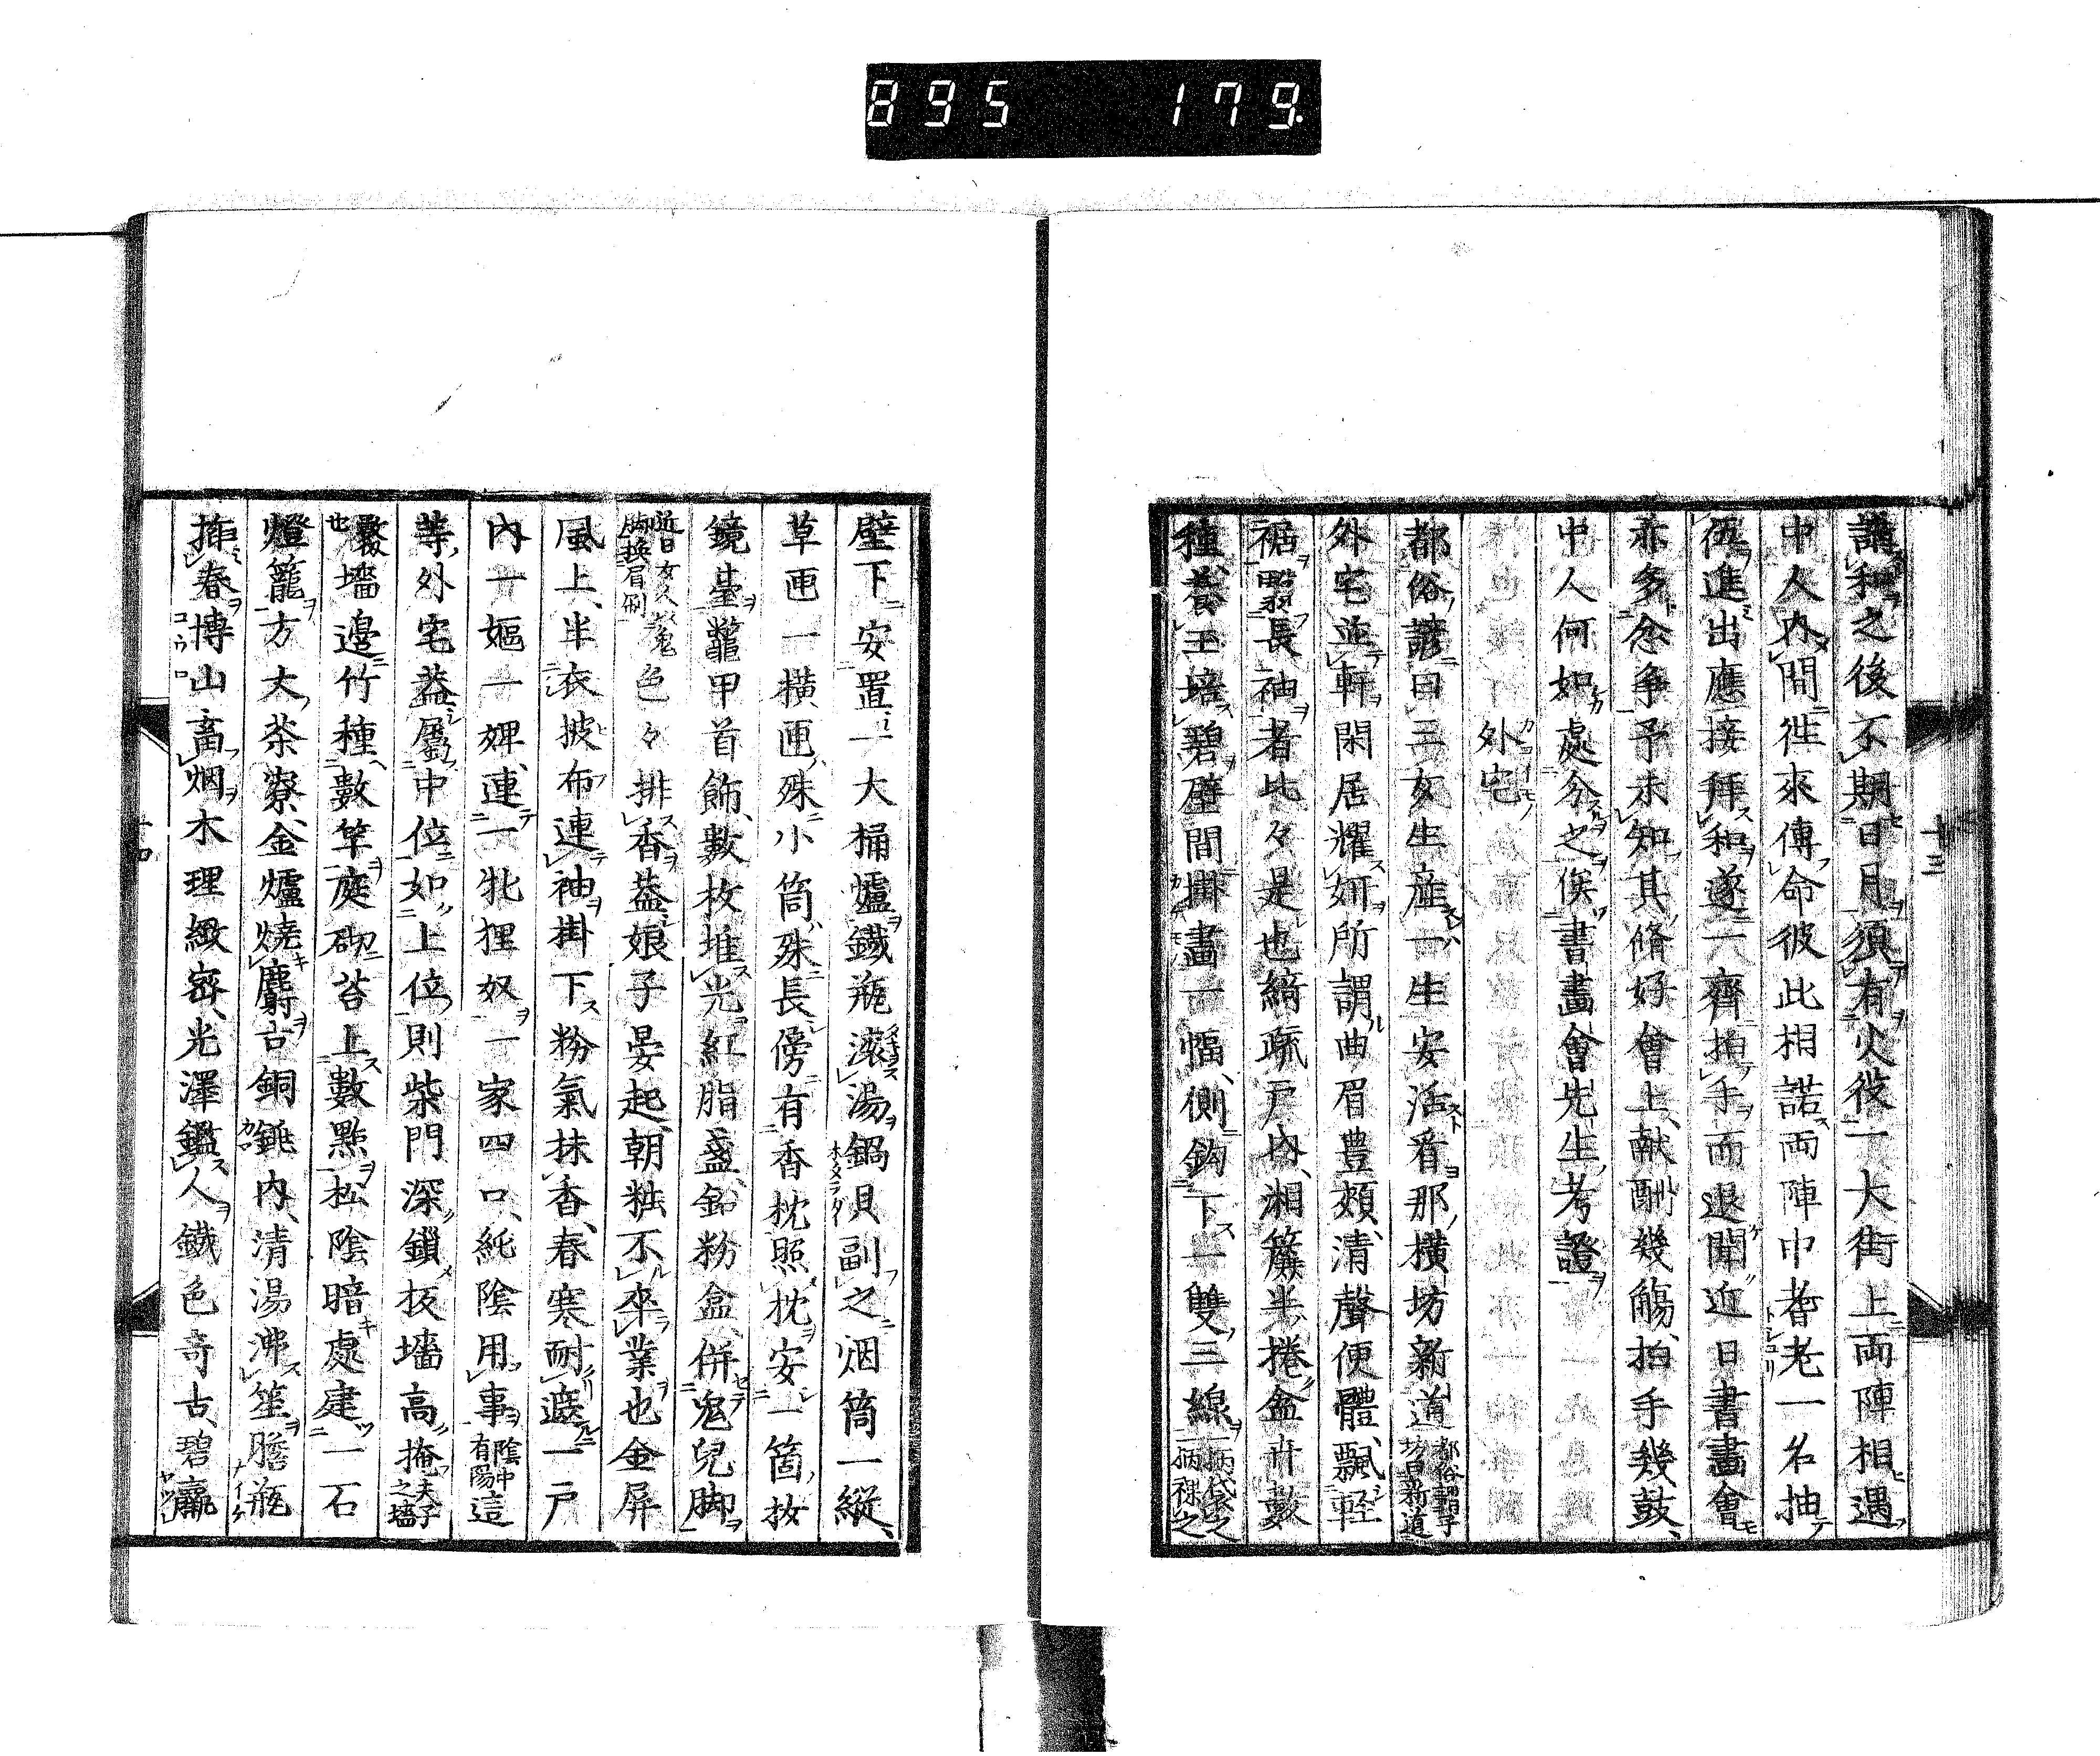 895 179
十三
講和之後不期日月須有火役一大街上両陣相遇
中人內間徃來傳命彼此相諾両陣中耆老一名抽
伍進出應接拜和遂一齊拍手而退聞近日書畫會
亦多念爭予未知其脩好會上献酬幾觴拍手幾鼓
中人何如處分之俟書畫會先生考證
外宅
都俗諺曰三女生產一生安活看那橫坊新道都俗謂尋坊曰新道
外宅並軒閑居耀妍所謂曲眉豊頰清聲便體飄輕
裾翳長袖者比々是也綺疏戸內湘簾半捲盆卉數
種養玉培碧壁間掛畫一幅側鈎下一雙三線一柄袋之一柄裸之
壁下安置一大桶爐鐵瓶滾湯鍋貝副之烟筒一縱
草匣一橫匣殊小筒殊長傍有香枕照枕安一箇枚
鏡臺鼈甲首飾數枚堆光紅脂盞鉛粉盒併鬼兒脚
近日女人以兔脚換眉刷色々排香葢娘子晏起朝粧不卒業也金屏
風上半衣披布連袖掛下粉氣抹香春寒耐遮一戸
內一嫗一婢連一牝狸奴一家四口純陰用事陰中有陽這
等外宅葢屬中位如上位則柴門深鎖板墻高掩夫子之墻
數也墻邊竹種數竿庭砌苔上數點松陰暗處建一石
燈籠方大茶寮金爐燒麝古銅銚內清湯沸笙膽瓶
揷春博山畜烟木理緻密光澤鑑人鐵色奇古碧